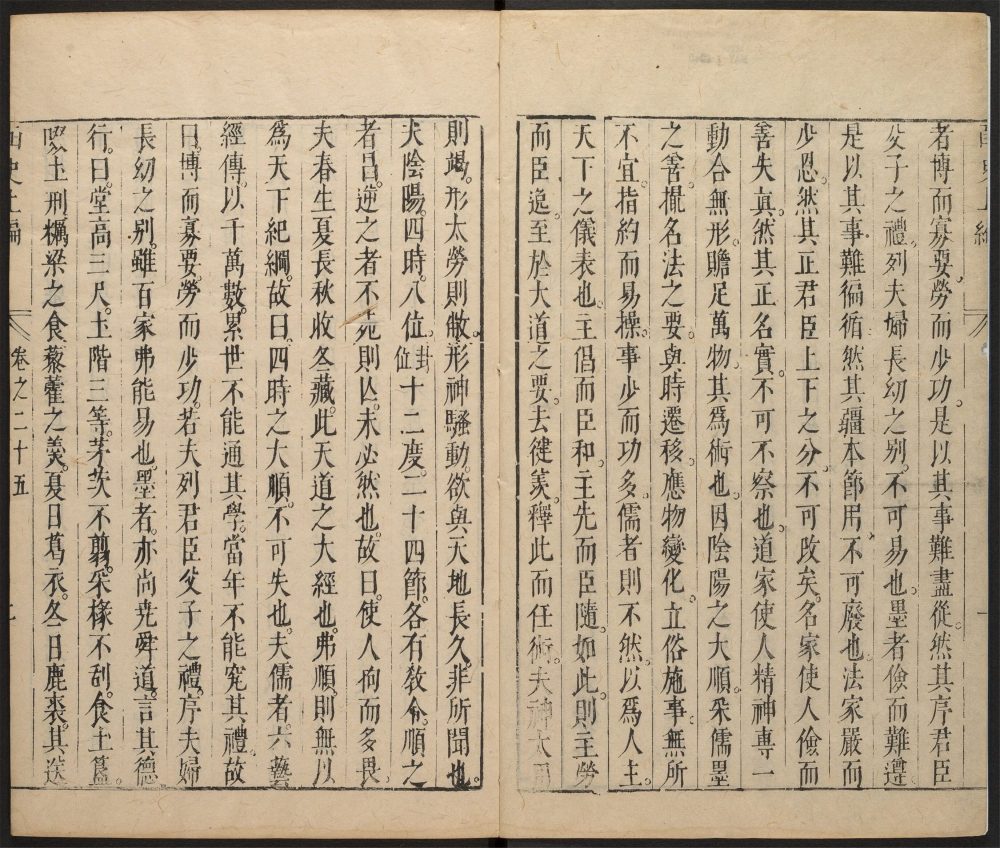 者博而寡要。勞而少功。是以其事難盡從。然其序君臣
父子之禮。列夫婦長幼之別。不可易也。墨者儉而難遵。
是以其事難徧循。然其彊本節用。不可廢也。法家嚴而
少恩。然其正君臣上下之分。不可改矣。名家使人儉而
善失眞。然其正名實。不可不察也。道家使人精神專一
動合無形。贍足萬物。其爲術也。因陰陽之大順。采儒墨
之善。撮名法之要。與時遷移。應物變化。立俗施事。無所
不宜。指約而易操。事少而功多。儒者則不然。以爲人主。
天下之儀表也。主倡而臣和。主先而臣隨。如此。則主勞
而臣逸。至於大道之要。去徤羨。釋此而任術。夫神大用
則竭。形太勞則敝。形神騷動。欲與天地長久。非所聞也。
夫陰陽。四時。八位。卦位十二度。二十四節。各有教令。順之
者昌。逆之者不死則亾。未必然也。故曰。使人拘而多畏。
夫春生夏長秋收冬藏。此天道之大經也。弗順。則無以
爲天下紀綱。故曰。四時之大順。不可失也。夫儒者。六藝
經傳。以千萬數。累世不能通其學。當年不能究其禮。故
曰。博而寡要。勞而少功。若夫列君臣父子之禮。序夫婦
長幼之別。雖百家弗能易也。墨者。亦尚尭舜道。言其德
行。曰。堂高三尺。土階三等。茅茨不翦。采椽不刮。食土簋。
啜土刑。糲粱之食。藜藿之羮。夏日葛衣。冬日鹿裘。其送
卷之二十五